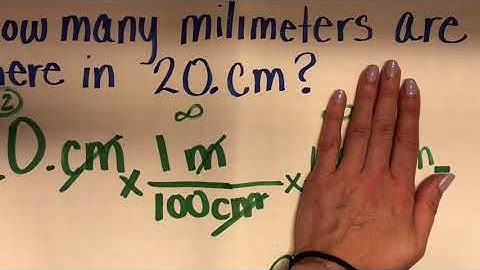 ow many milimeters are
here in 20.cm?
2
0.cm x 1m x 1 m
∞ 100cm